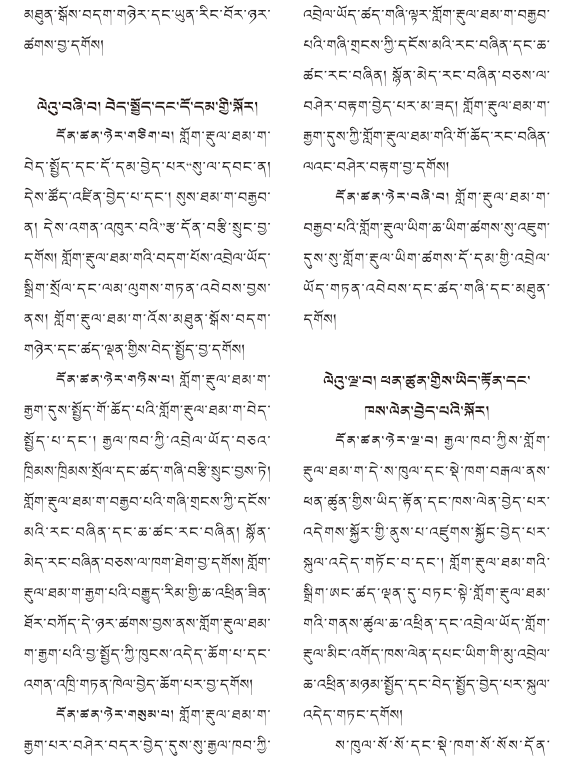 མཐུན་སྒོས་བདག་གཉེར་དང་ཡུན་རིང་བོར་ཉར་
ཚགས་བྱ་དགོས།
ལེའུ་བཞི་བ། བེད་སྤྱོད་དང་དོ་དམ་གྱི་སྐོར།
དོན་ཚན་ཉེར་གཅིག་པ། གློག་རྡུལ་ཐམ་ག་
བེད་སྤྱོད་དང་དོ་དམ་བྱེད་པར“སུ་ལ་དབང་ན།
དེས་ཚོད་འཛིན་བྱེད་པ་དང་། སུས་ཐམ་ག་བརྒྱབ་
ན། དེས་འགན་འཁུར་བའི”རྩ་དོན་བརྩི་སྲུང་བྱ་
དགོས། གློག་རྡུལ་ཐམ་གའི་བདག་པོས་འབྲེལ་ཡོད་
སྒྲིག་སྲོལ་དང་ལམ་ལུགས་གཏན་འབེབས་བྱས་
ནས། གློག་རྡུལ་ཐམ་ག་འོས་མཐུན་སྒོས་བདག་
གཉེར་དང་ཚད་ལྡན་གྱིས་བེད་སྤྱོད་བྱ་དགོས།
དོན་ཚན་ཉེར་གཉིས་པ། གློག་རྡུལ་ཐམ་ག་
རྒྱག་དུས་སྤྱོད་གོ་ཆོད་པའི་གློག་རྡུལ་ཐམ་ག་བེད་
སྤྱོད་པ་དང་། རྒྱལ་ཁབ་ཀྱི་འབྲེལ་ཡོད་བཅའ་
ཁྲིམས་ཁྲིམས་སྲོལ་དང་ཚད་གཞི་བརྩི་སྲུང་བྱས་ཏེ།
གློག་རྡུལ་ཐམ་ག་བརྒྱབ་པའི་གཞི་གྲངས་ཀྱི་དངོས་
མའི་རང་བཞིན་དང་ཆ་ཚང་རང་བཞིན། སྙོན་
མེད་རང་བཞིན་བཅས་ལ་ཁག་ཐེག་བྱ་དགོས། གློག་
རྡུལ་ཐམ་ག་རྒྱག་པའི་བརྒྱུད་རིམ་གྱི་ཆ་འཕྲིན་ཟིན་
ཐོར་བཀོད་དེ་ཉར་ཚགས་བྱས་ནས་གློག་རྡུལ་ཐམ་
ག་རྒྱག་པའི་བྱ་སྤྱོད་ཀྱི་ཁུངས་འདེད་ཆོག་པ་དང་
འགན་འཁྲི་གཏན་ཁེལ་བྱེད་ཆོག་པར་བྱ་དགོས།
དོན་ཚན་ཉེར་གསུམ་པ། གློག་རྡུལ་ཐམ་ག་
རྒྱག་པར་བཤེར་བདར་བྱེད་དུས་སུ་རྒྱལ་ཁབ་ཀྱི་
འབྲེལ་ཡོད་ཚད་གཞི་ལྟར་གློག་རྡུལ་ཐམ་ག་བརྒྱབ་
པའི་གཞི་གྲངས་ཀྱི་དངོས་མའི་རང་བཞིན་དང་ཆ་
ཚང་རང་བཞིན། སྙོན་མེད་རང་བཞིན་བཅས་ལ་
བཤེར་བརྟག་བྱེད་པར་མ་ཟད། གློག་རྡུལ་ཐམ་ག་
རྒྱག་དུས་ཀྱི་གློག་རྡུལ་ཐམ་གའི་གོ་ཆོད་རང་བཞིན་
ལའང་བཤེར་བརྟག་བྱ་དགོས།
དོན་ཚན་ཉེར་བཞི་བ། གློག་རྡུལ་ཐམ་ག་
བརྒྱབ་པའི་གློག་རྡུལ་ཡིག་ཆ་ཡིག་ཚགས་སུ་འཇུག་
དུས་སུ་གློག་རྡུལ་ཡིག་ཚགས་དོ་དམ་གྱི་འབྲེལ་
ཡོད་གཏན་འབེབས་དང་ཚད་གཞི་དང་མཐུན་
དགོས།
ལེའུ་ལྔ་བ། ཕན་ཚུན་གྱིས་ཡིད་རྟོན་དང་
ཁས་ལེན་བྱེད་པའི་སྐོར།
དོན་ཚན་ཉེར་ལྔ་བ། རྒྱལ་ཁབ་ཀྱིས་གློག་
རྡུལ་ཐམ་ག་དེ་ས་ཁུལ་དང་སྡེ་ཁག་བརྒལ་ནས་
ཕན་ཚུན་གྱིས་ཡིད་རྟོན་དང་ཁས་ལེན་བྱེད་པར་
འདེགས་སྐྱོར་གྱི་ནུས་པ་འཛུགས་སྐྱོང་བྱེད་པར་
སྐུལ་འདེད་གཏོང་བ་དང་། གློག་རྡུལ་ཐམ་གའི་
སྒྲིག་ཨང་ཚད་ལྡན་དུ་བཏང་སྟེ་གློག་རྡུལ་ཐམ་
གའི་གནས་ཚུལ་ཆ་འཕྲིན་དང་འབྲེལ་ཡོད་གློག་
རྡུལ་མིང་འགོད་ཁས་ལེན་དཔང་ཡིག་གི་མུ་འབྲེལ་
ཆ་འཕྲིན་མཉམ་སྤྱོད་དང་བེད་སྤྱོད་བྱེད་པར་སྐུལ་
འདེད་གཏང་དགོས།
ས་ཁུལ་སོ་སོ་དང་སྡེ་ཁག་སོ་སོས་དོན་